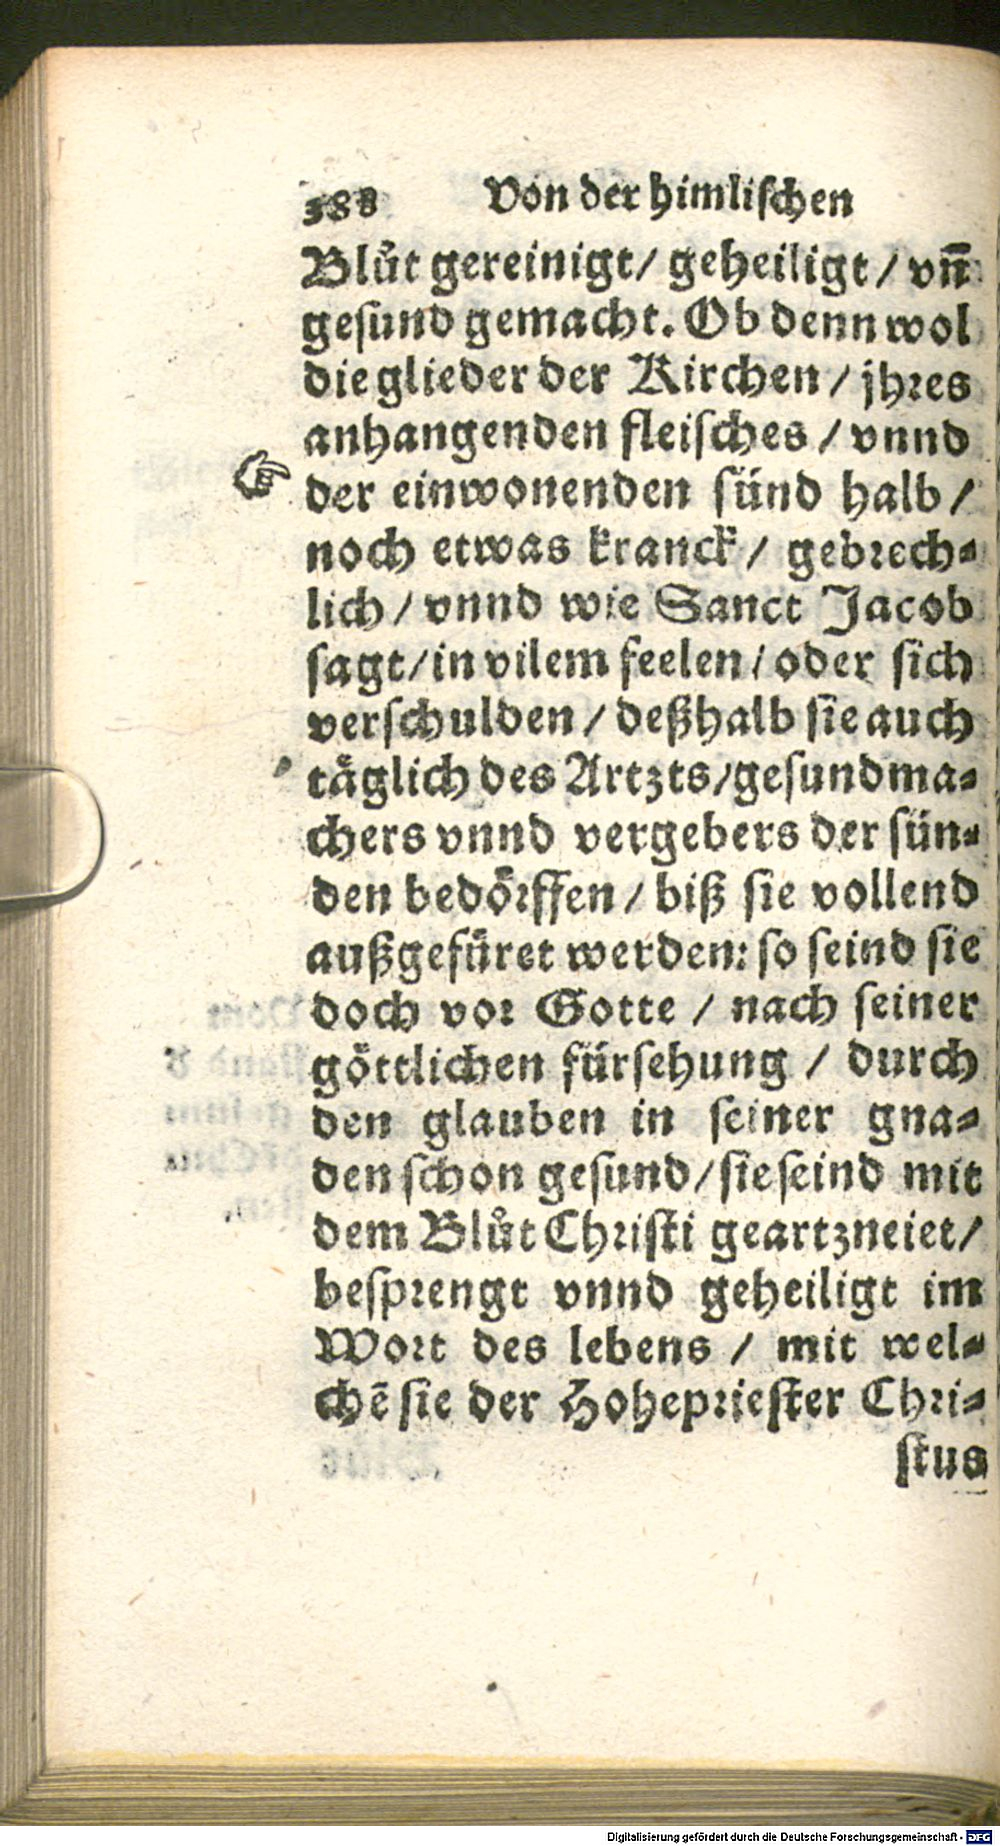 188 Von der himlischen
Blůt gereinigt/ geheiligt / vñ
gesund gemacht. Ob denn wol
die glieder der Kirchen / jhres
anhangenden fleisches / vnnd
☞ der einwonenden sünd halb /
noch etwas kranck / gebrech⸗
lich / vnnd wie Sanct Jacob
sagt/ in vilem feelen / oder sich
verschulden / deßhalb sie auch
täglich des Artzts/gesundma⸗
chers vnnd vergebers der sün⸗
den bedörffen / biß sie vollend
außgefüret werden: so seind sie
doch vor Gotte / nach seiner
göttlichen fürsehung / durch
den glauben in seiner gna⸗
den schon gesund/ sie seind mit
dem Blůt Christi geartzneiet/
besprengt vnnd geheiligt im
Wort des lebens / mit wel⸗
chē sie der Hohepriester Chri⸗
stus
Digitalisierung gefördert durch die Deutsche Forschungsgemeinschaft - DFG